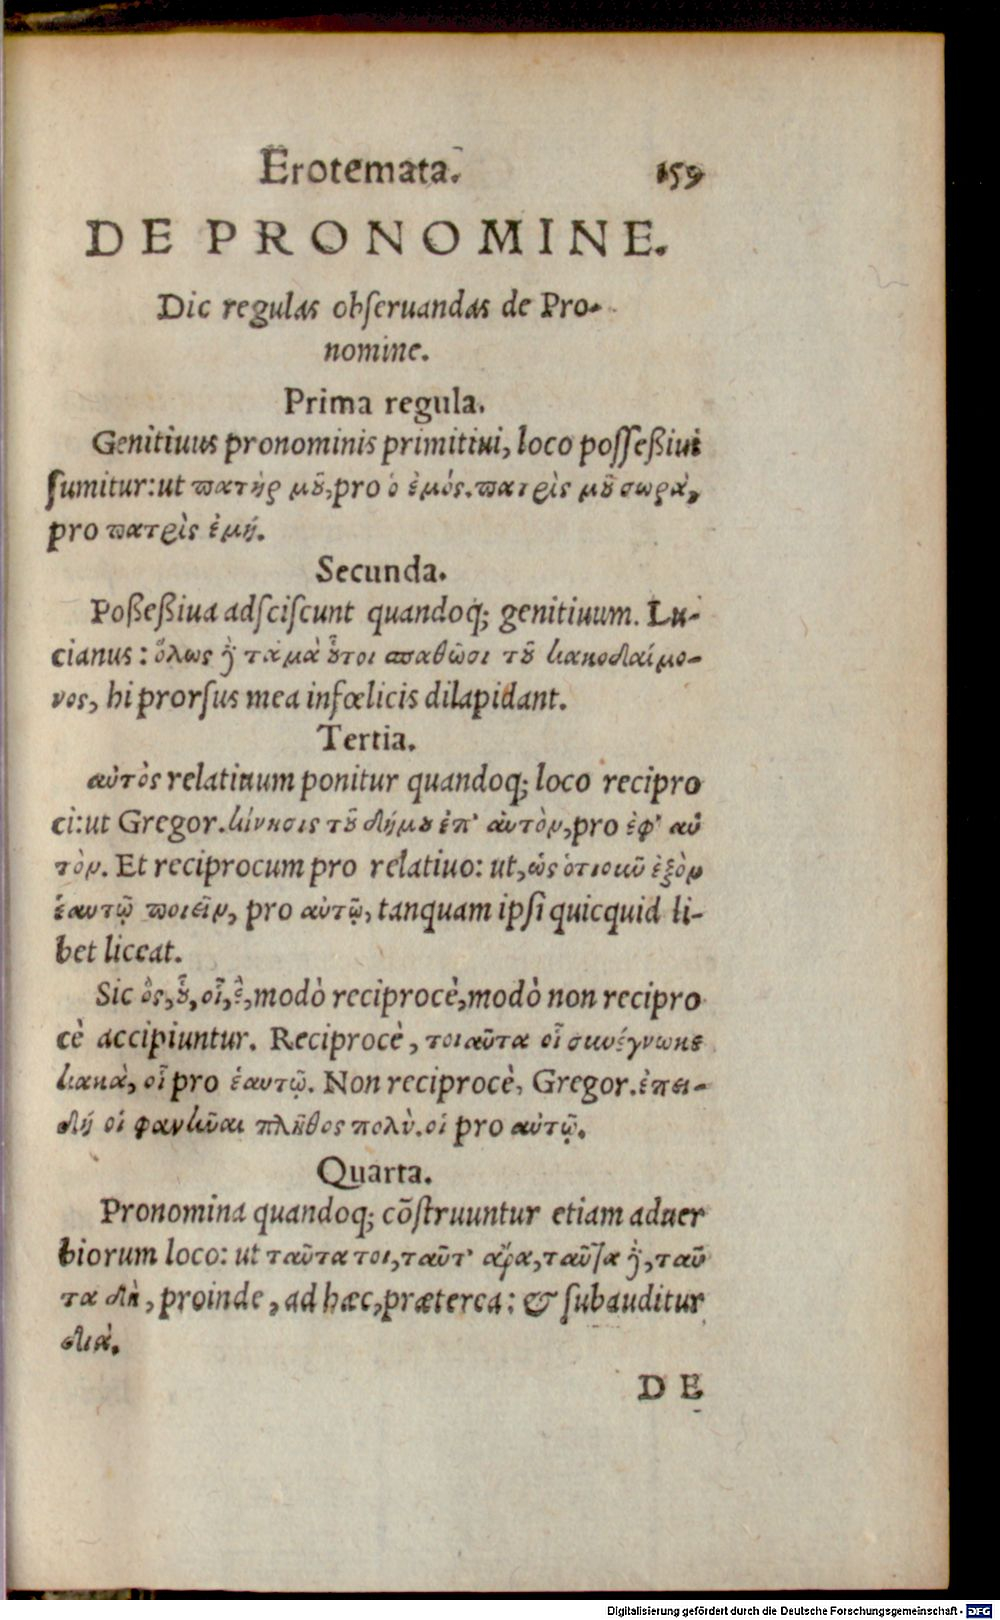 Erotemata. 159
DE PRONOMINE.
Dic regulas obſeruandas de Pro-
nomine.
Prima regula.
Genitiuus pronominis primitiui, loco poſſeßiui
ſumitur: ut πατήρ μȣ̃, pro ὁ ἐμός. πατρὶς μȣ̃
pro πατρὶς ἐμή.
Secunda.
Poßeßiua adſciſcunt quandoq; genitiuum. Lu-
cianus: ὅλως τἀμὰ ȣ̃τοι σπαθῶσι τȣ̃ κακοδαίμο-
νος, hi prorſus mea infœlicis dilapidant.
Tertia.
αὐτὸς relatiuum ponitur quandoq; loco recipro
ci: ut Gregor. κίνησις τȣ̃ δήμȣ ἐπ' ἀυτὸν, pro ἐφ' αὑ
τὸν. Et reciprocum pro relatiuo: ut, ὡς ὁτιοιοῦν ἐξὸν
ἑαυτῷ ποιεῖν, pro αὐτῷ, tanquam ipſi quicquid li-
bet liceat.
Sic ὃς, ȣ̃, οἷ, ἓ, modò reciprocè, modò non recipro
cè accipiuntur. Reciprocè, τοιαῦτα οἷ συνέγνωκε
κακὰ, οἷ pro ἑαυτῷ. Non reciprocè, Gregor. ἐπει-
δή οἱ φανῆναι πλῆθος πολὺ. οἱ pro αὐτῷ.
Quarta.
Pronomina quandoq; cõſtruuntur etiam aduer
biorum loco: ut ταῦτα τοι, ταῦτ' ἄρα, ταῦτα γὰρ, ταῦ
τα δὴ, proinde, ad hæc, præterea: & ſubauditur
διὰ.
DE
Digitalisierung gefördert durch die Deutsche Forschungsgemeinschaft - DFG